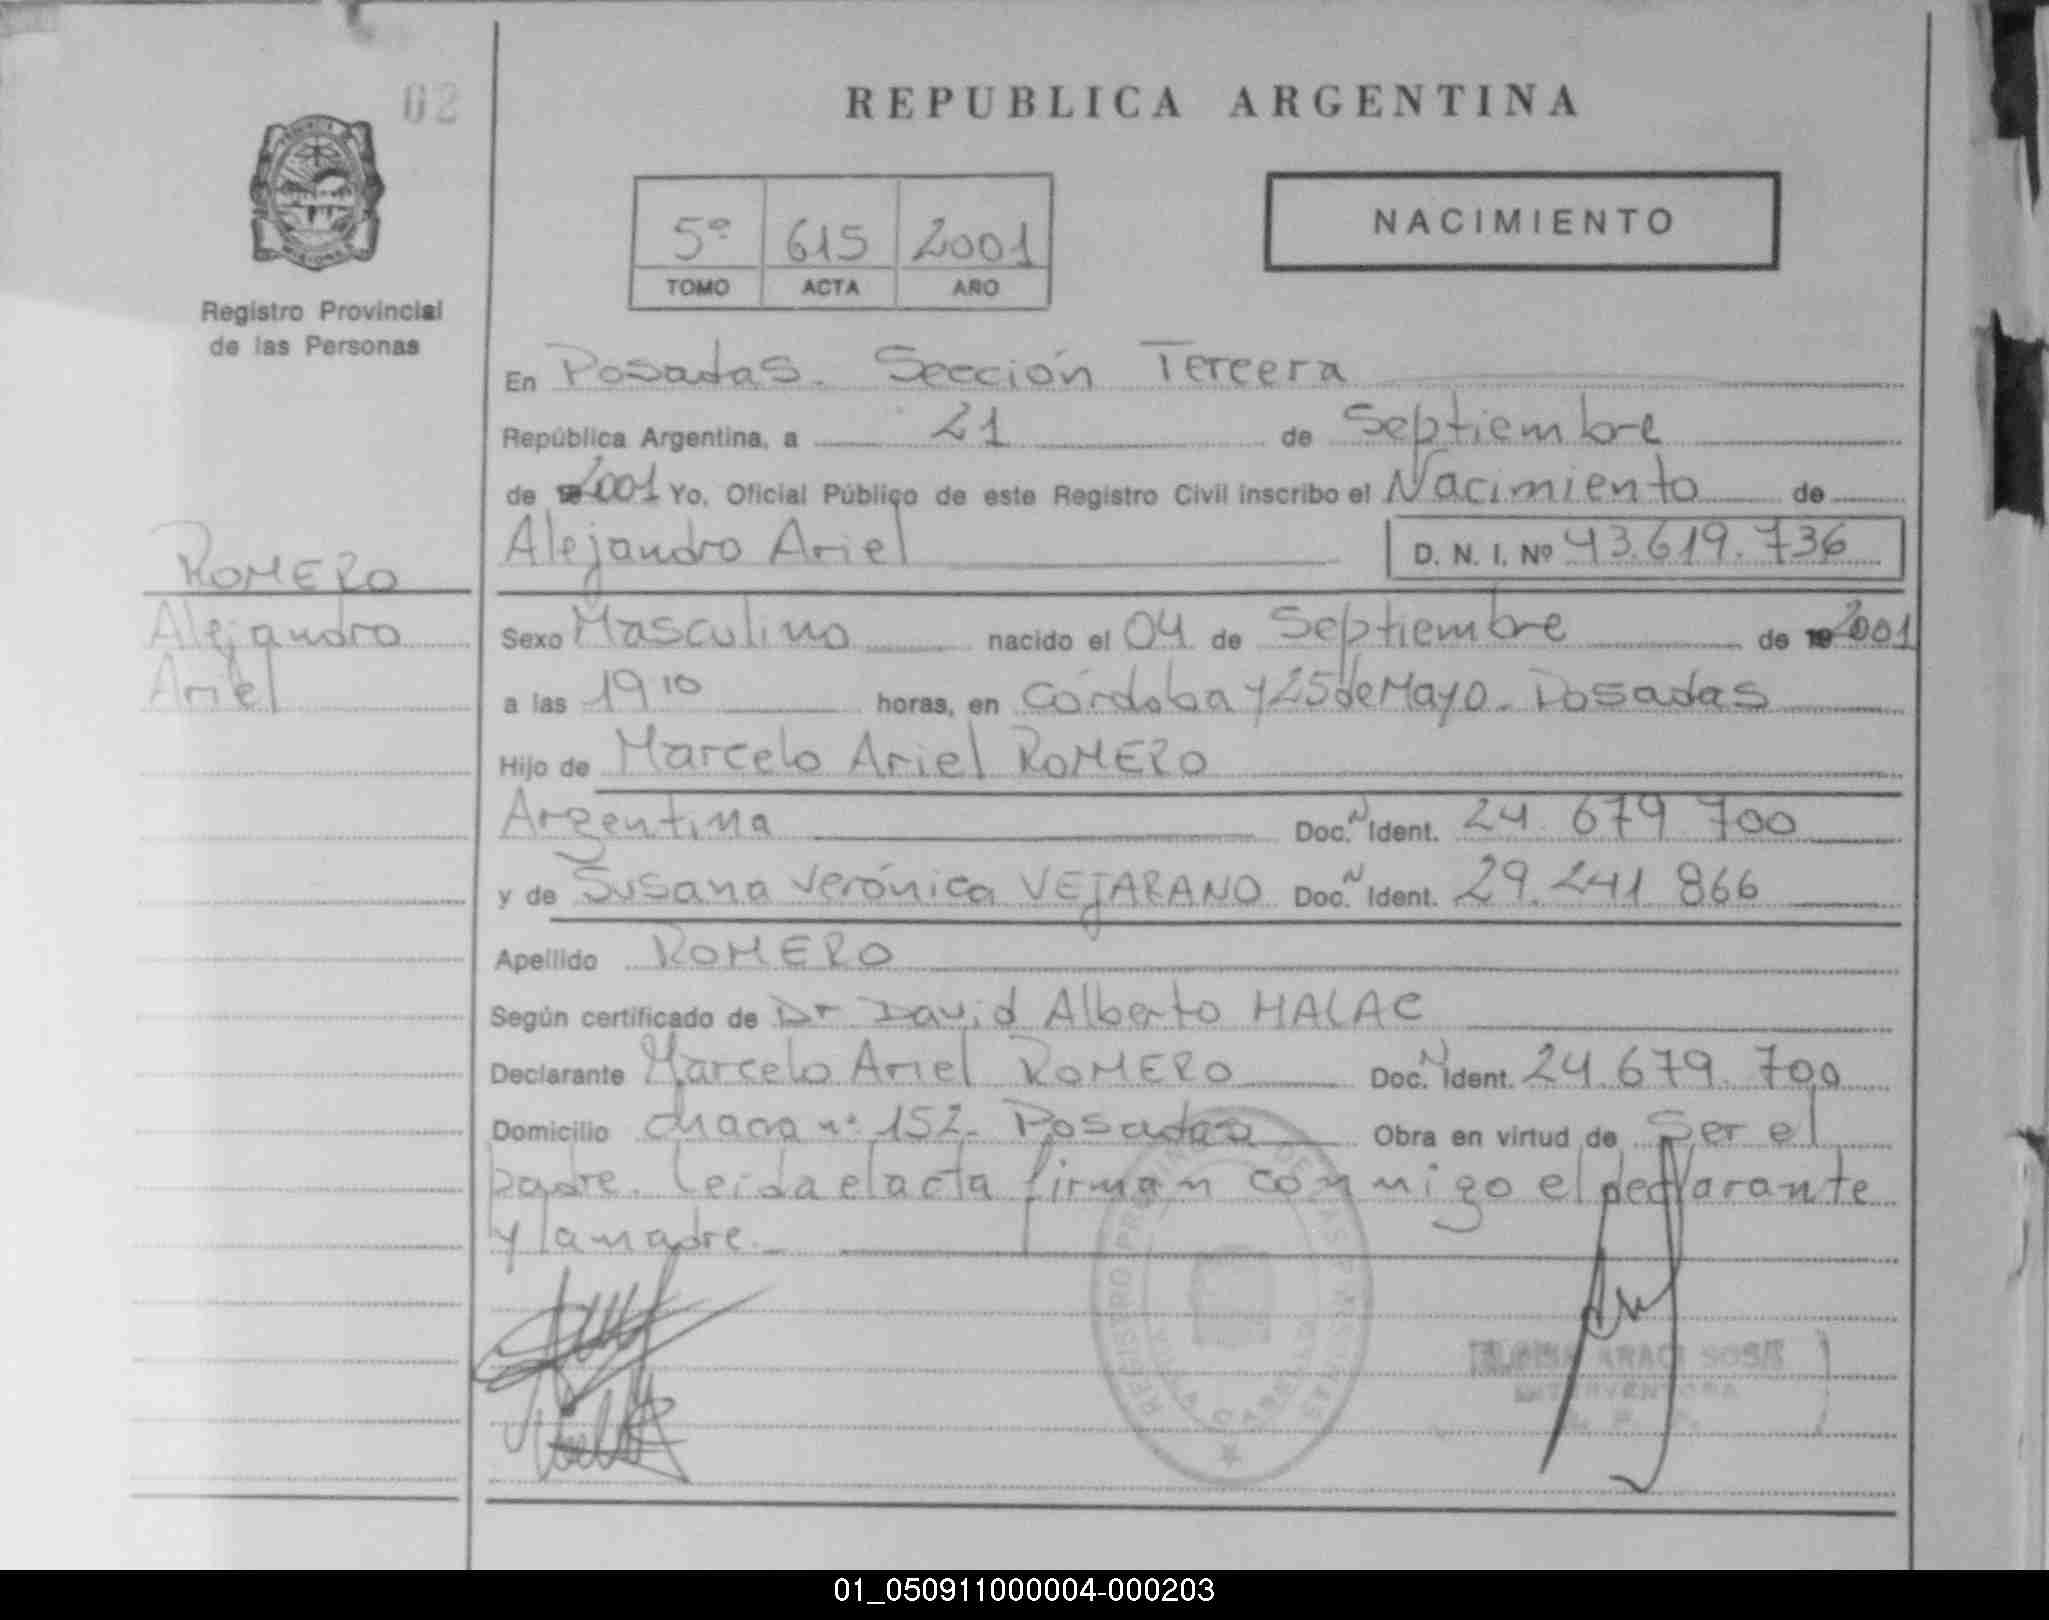 02
REPUBLICA ARGENTINA
5º 615 2001
TOMO ACTA AÑO
NACIMIENTO
Registro Provincial
de las Personas
En Posadas. Sección Tercera
República Argentina, a 21 de Septiembre
de 2001 Yo, Oficial Público de este Registro Civil inscribo el Nacimiento de
Alejandro Ariel D. N. I. Nº 43.619.736
ROMERO
Alejandro
Ariel
Sexo Masculino nacido el 04 de Septiembre de 2001
a las 19 10 horas, en Córdoba y 25 de Mayo. Posadas
Hijo de Marcelo Ariel ROMERO
Argentina Doc. N Ident. 24 679 700
y de Susana Verónica VEJARANO Doc. N Ident. 29.241 866
Apellido ROMERO
Según certificado de Dr David Alberto MALAC
Declarante Marcelo Ariel ROMERO Doc. N Ident. 24.679.700
Domicilio chacra nº 152. Posadas Obra en virtud de Ser el
padre. Leida el acta firman conmigo el declarante
y la madre.
REGISTRO PROVINCIAL DE LAS PERSONAS
ARACI SOSA
INTERVENTORA
01_050911000004-000203